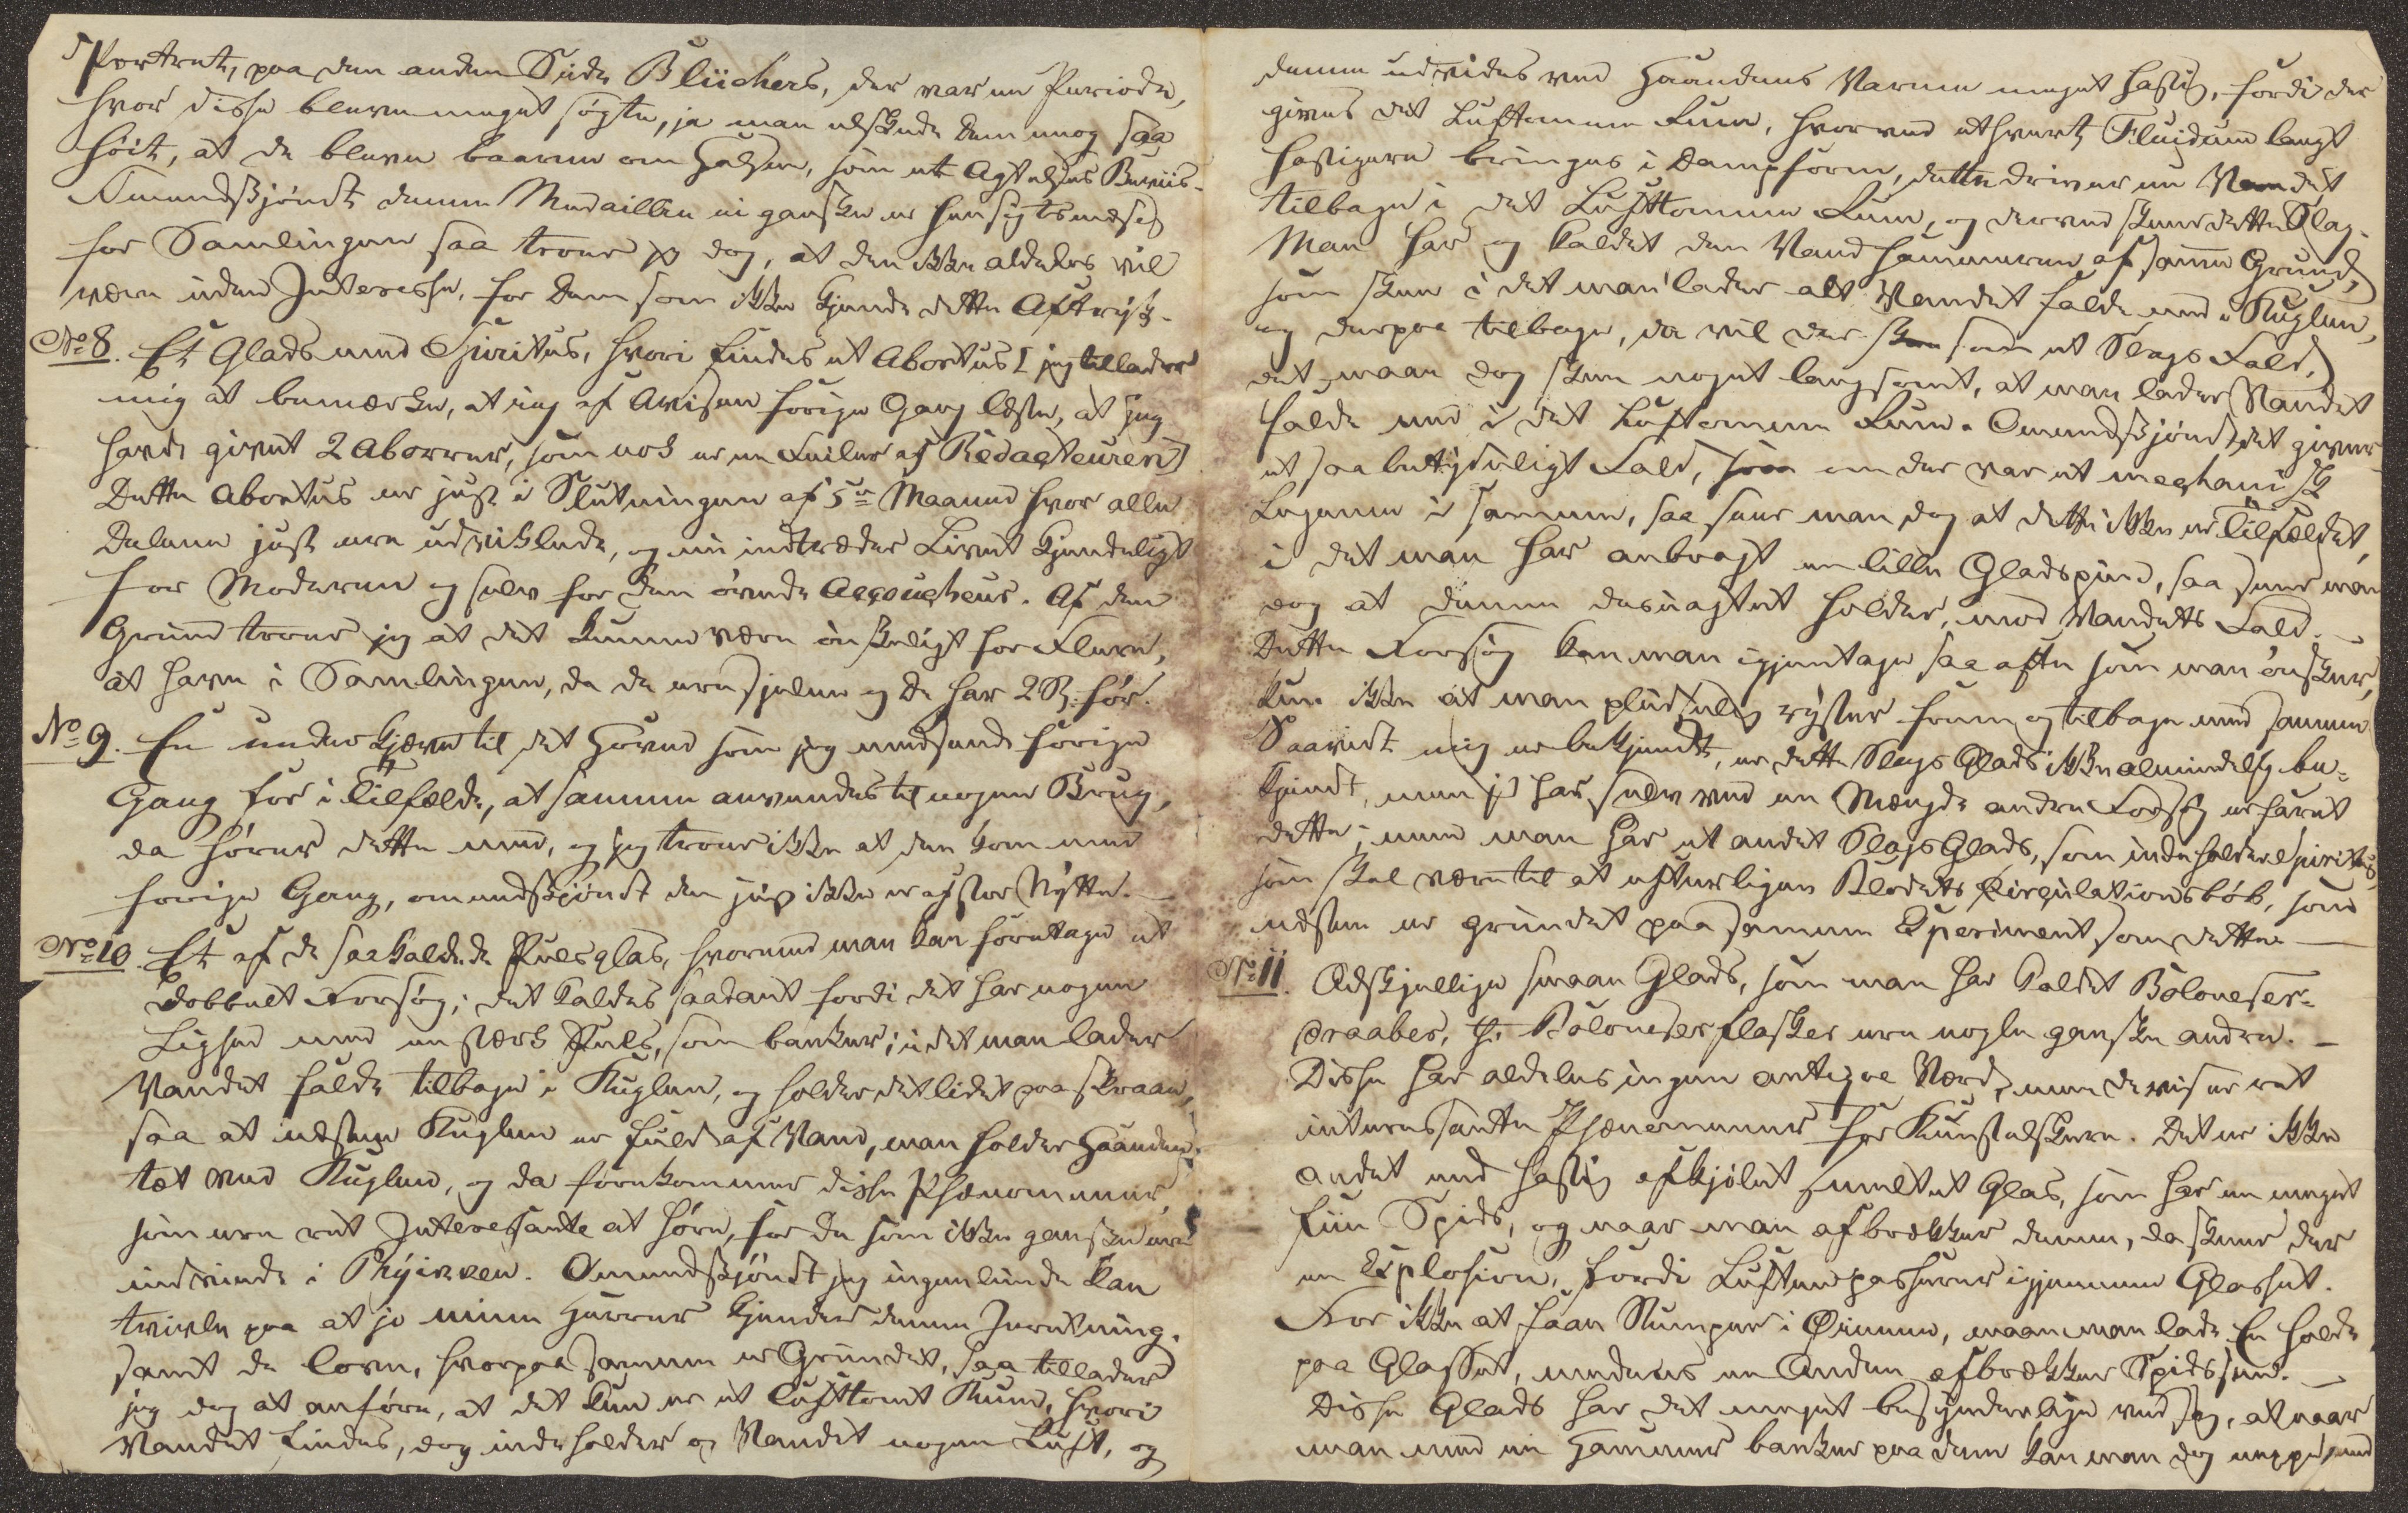 Portrait, paa den anden Side Blüchers, der var en Periode,
hvor disse bleve meget søgte, ja man elskede dem nog saa
høit, at de bleve baarne om Halsen, som et Agtelses Beviis.
Omendskjøndt denne Medaille ei ganske er hensigtsmæsig
for Samlingen saa troer jeg dog, at den ikke aldeles vil
være uden Interesse, for Dem som ikke kjende dette Aftryk.
No 8. Et Glads med Spiritus, hvori findes et Abortus [jeg tillader
mig at bemærke, at jeg af Avisen forige Gang læste, at jeg
havde givet 2 Aborrer, som nok er en Feiler af Redacteuren]
Dette Abortus er just i Slutningen af 5te Maaned hvor alle
Delene just ere udviklede, og nu indtræder Livet kjendeligt
for Moderen og selv for den øvede Accoucheur. Af den
Grund troer jeg at det kunne være ønskeligt for Flere,
at have i Samlingen, da de ere sjelne og De har 2 St. før.
No 9. En underkjæve til det Hoved som jeg medsende forige
Gang for i Tilfælde, at samme anvendes til nogen Brug,
da hører dette med, og jeg troer ikke at den kom med
forige Gang, omendskjøndt den just ikke er af stor Nytte.
No 10. Et af de saakaldede Pulsglas, hvormed man kan foretage et
dobbelt Forsøg; det kaldes saadant fordi det har nogen
Lighed med en stærk Puls, som banker; i det man lader
Vandet falde tilbage i Kuglen, og holder det lidet paa skraa,
saa at nederste Kuglen er fuld af Vand, man holder Haanden
tæt ved Kuglen, og da forekommer disse Phænomener,
som ere ret Interesante at høre, for de som ikke ganske ere
indviede i Physikken. Omendskjøndt jeg ingenlunde kan
tvivle paa at jo mine Herrer kjender denne Inretning,
samt de love, hvorpaa samme er Grundet, saa tillader
jeg dog at anføre, at det kun er et lufttomt Rum, hvori
Vandet findes, dog indeholder og Vandet nogen Luft, og
denne udvides ved Haandens Varme meget hastig, fordi der
gives det Lufttomme Rum, hvorved ethvert Fluidum langt
hastigere bringes i Dampform, dette driver nu Vandet
tilbage i det Lufttomme Rum, og derved skeer dette Slag.
Man har og kaldet den Vandhammeren af samme Grund,
som skeer i det man lader alt Vandet falde ned i Kuglen,
og derpaa tilbage, da vil der skee som et Slags Fald,
det maae dog skee noget langsomt, at man lader Vandet
falde ned i det Lufttomme Rum. Omendskjøndt det giver
et saa betydeligt Fald, som om der var et meghanisk
Legeme i samme, saa seer man dog at dette ikke er Tilfældet,
i det man har anbragt en lille Gladspind, saa seer man
dog at denne desuagtet holder, mod Vandets Fald.
Dette Forsøg kan man igjentage saa ofte som man ønsker,
kun ikke at man pludselig ryster frem og tilbage med samme
Saavidt mig er bekjendt, er dette Slags Glads ikke almindelig be-
kjendt, men jeg har selv ved en Mængde andre Forsøg erfaret
dette; men man har et andet Slags Glads, som indeholder Spiritus,
som skal være til at efterligne Blodets Cirqulationsløb, som
næsten er grundet paa samme Experiment som dette.
No 11. Adskjellige smaae Glads, som man har kaldet Boloneser-
draaber, thi Boloneserflasker ere nogle ganske andre.
Disse har aldeles ingen antique Værd, men de viser ret
interessante Phænomener for Kunstelskere. Det er ikke
andet end hastig afkjølet smeltet Glas, som har en meget
fiin Spids, og naar man afbrækker denne, da skeer der
en Explosion, fordi Luften passerer igjennem Glasset.
For ikke at faae Stumper i Øinene, maae man lade En holde
paa Glasset, medens en Anden afbrækker Spidssen.
Disse Glads har det meget besynderlige ved sig, at naar
man med en Hammer banker paa dem kan man dog neppe